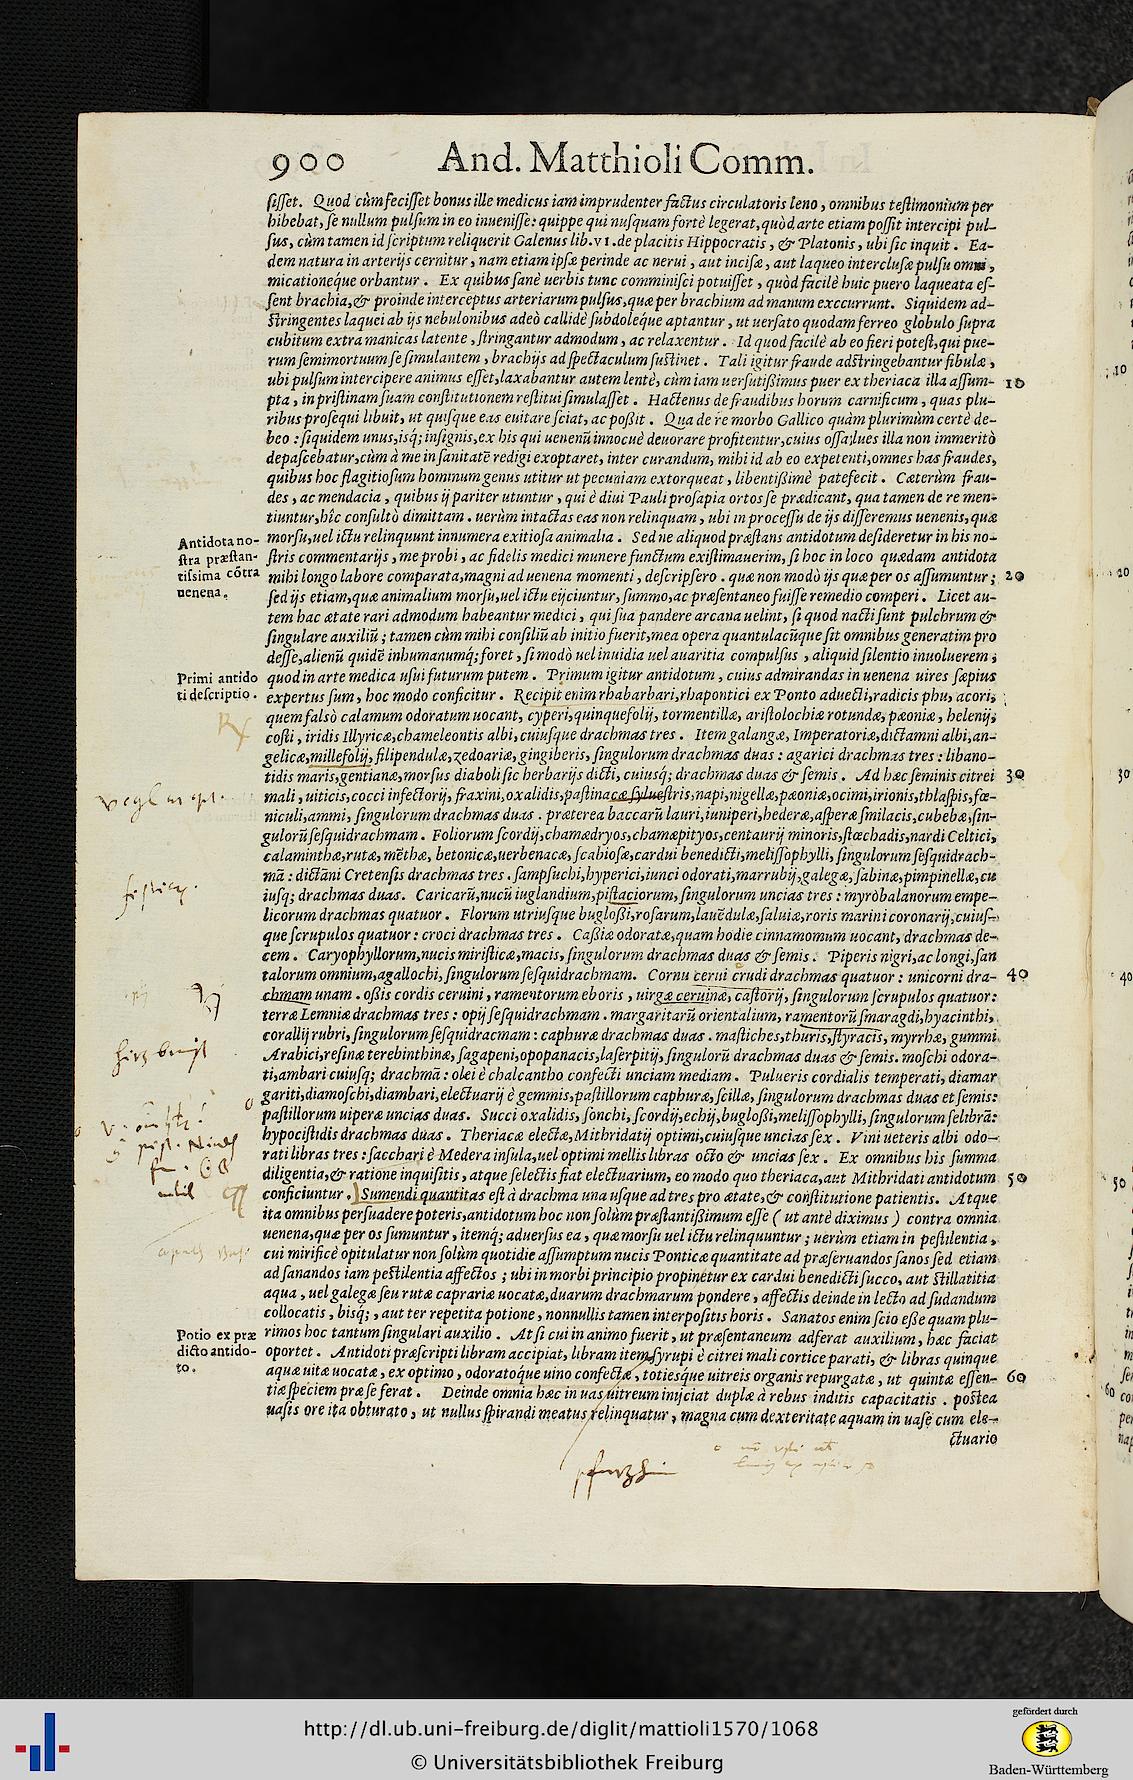 900 And. Matthioli Comm.
ſiſſet. Quod cùm feciſſet bonus ille medicus iam imprudenter factus circulatoris leno, omnibus teſtimonium per
hibebat, ſe nullum pulſum in eo inueniſſe: quippe qui nuſquam fortè legerat, quòd arte etiam poſſit intercipi pul-
ſus, cùm tamen id ſcriptum reliquerit Galenus lib. VI. de placitis Hippocratis, & Platonis, ubi ſic inquit. Ea-
dem natura in arterijs cernitur, nam etiam ipſæ perinde ac nerui, aut inciſæ, aut laqueo intercluſæ pulſu omni,
micationeq́ue orbantur. Ex quibus ſanè uerbis tunc comminiſci potuiſſet, quòd facilè huic puero laqueata eſ-
ſent brachia, & proinde interceptus arteriarum pulſus, quæ per brachium ad manum exccurrunt. Siquidem ad-
ſtringentes laquei ab ijs nebulonibus adeò callidè ſubdoleq́ue aptantur, ut uerſato quodam ferreo globulo ſupra
cubitum extra manicas latente, ſtringantur admodum, ac relaxentur. Id quod facilè ab eo fieri poteſt, qui pue-
rum ſemimortuum ſe ſimulantem, brachijs ad ſpectaculum ſuſtinet. Tali igitur fraude adſtringebantur fibulæ,
ubi pulſum intercipere animus eſſet, laxabantur autem lentè, cùm iam uerſutißimus puer ex theriaca illa aſſum- 10
pta, in priſtinam ſuam conſtitutionem reſtitui ſimulaſſet. Hactenus de fraudibus horum carnificum, quas plu-
ribus proſequi libuit, ut quiſque eas euitare ſciat, ac poßit. Qua de re morbo Gallico quàm plurimùm certè de-
beo: ſiquidem unus, isq́; inſignis, ex his qui uenenū innocuè deuorare profitentur, cuius oſſa; lues illa non immeritò
depaſcebatur, cùm à me in ſanitatē redigi exoptaret, inter curandum, mihi id ab eo expetenti, omnes has fraudes,
quibus hoc flagitioſum hominum genus utitur ut pecuniam extorqueat, libentißimè patefecit. Cæterùm frau-
des, ac mendacia, quibus ij pariter utuntur, qui è diui Pauli proſapia ortos ſe prædicant, qua tamen de re men-
tiuntur, hîc conſultò dimittam. uerùm intactas eas non relinquam, ubi in proceſſu de ijs diſſeremus uenenis, quæ
Antidota no-
ſtra præſtan-
tiſsima cōtra
uenena.
morſu, uel ictu relinquunt innumera exitioſa animalia. Sed ne aliquod præſtans antidotum deſideretur in his no-
ſtris commentarijs, me probi, ac fidelis medici munere functum exiſtimauerim, ſi hoc in loco quædam antidota
mihi longo labore comparata, magni ad uenena momenti, deſcripſero. quæ non modò ijs quæ per os aſſumuntur; 20
ſed ijs etiam, quæ animalium morſu, uel ictu eijciuntur, ſummo, ac præſentaneo fuiſſe remedio comperi. Licet au-
tem hac ætate rari admodum habeantur medici, qui ſua pandere arcana uelint, ſi quod nacti ſunt pulchrum &
ſingulare auxiliū; tamen cùm mihi conſiliū ab initio fuerit, mea opera quantulacūque ſit omnibus generatim pro
deſſe, alienū quidē inhumanumq́; foret, ſi modò uel inuidia uel auaritia compulſus, aliquid ſilentio inuoluerem,
Primi antido
ti deſcriptio.
quod in arte medica uſui futurum putem. Primum igitur antidotum, cuius admirandas in uenena uires ſæpius
expertus ſum, hoc modo conficitur. Recipit enim rhabarbari, rhapontici ex Ponto aduecti, radicis phu, acori,
quem falsò calamum odoratum uocant, cyperi, quinquefolij, tormentillæ, ariſtolochiæ rotundæ, pæoniæ, helenij,
coſti, iridis Illyricæ, chameleontis albi, cuiuſque drachmas tres. Item galangæ, Imperatoriæ, dictamni albi, an-
gelicæ, millefolij, filipendulæ, zedoariæ, gingiberis, ſingulorum drachmas duas: agarici drachmas tres: libano-
tidis maris, gentianæ, morſus diaboli ſic herbarijs dicti, cuiusq́; drachmas duas & ſemis. Ad hæc ſeminis citrei 30
mali, uiticis, cocci infectorij, fraxini, oxalidis, paſtinacæ ſylueſtris, napi, nigellæ, pæoniæ, ocimi, irionis, thlaſpis, fœ-
niculi, ammi, ſingulorum drachmas duas. præterea baccarū lauri, iuniperi, hederæ, aſperæ ſmilacis, cubebæ, ſin-
gulorū ſeſquidrachmam. Foliorum ſcordij, chamædryos, chamæpityos, centaurij minoris, ſtœchadis, nardi Celtici,
calaminthæ, rutæ, mēthæ, betonicæ, uerbenacæ, ſcabioſæ, cardui benedicti, meliſſophylli, ſingulorum ſeſquidrach-
mā: dictāni Cretenſis drachmas tres. ſampſuchi, hyperici, iunci odorati, marrubij, galegæ, ſabinæ, pimpinellæ, cu
iusq́; drachmas duas. Caricarū, nucū iuglandium, piſtaciorum, ſingulorum uncias tres: myrobalanorum empe-
licorum drachmas quatuor. Florum utriuſque bugloßi, roſarum, lauēdulæ, ſaluiæ, roris marini coronarij, cuiuſ-
que ſcrupulos quatuor: croci drachmas tres. Caßiæ odoratæ, quam hodie cinnamomum uocant, drachmas de-
cem. Caryophyllorum, nucis miriſticæ, macis, ſingulorum drachmas duas & ſemis. Piperis nigri, ac longi, ſan
talorum omnium, agallochi, ſingulorum ſeſquidrachmam. Cornu cerui crudi drachmas quatuor: unicorni dra- 40
chmam unam. oßis cordis ceruini, ramentorum eboris, uirgæ ceruinæ, caſtorij, ſingulorum ſcrupulos quatuor:
terræ Lemniæ drachmas tres: opij ſeſquidrachmam. margaritarū orientalium, ramentorū ſmaragdi, hyacinthi,
corallij rubri, ſingulorum ſeſquidracmam: caphuræ drachmas duas. maſtiches, thuris, ſtyracis, myrrhæ, gummi
Arabici, reſinæ terebinthinæ, ſagapeni, opopanacis, laſerpitij, ſingulorū drachmas duas & ſemis. moſchi odora-
ti, ambari cuiusq́; drachmā: olei è chalcantho confecti unciam mediam. Pulueris cordialis temperati, diamar
gariti, diamoſchi, diambari, electuarij è gemmis, paſtillorum caphuræ, ſcillæ, ſingulorum drachmas duas et ſemis:
paſtillorum uiperæ uncias duas. Succi oxalidis, ſonchi, ſcordij, echij, bugloßi, meliſſophylli, ſingulorum ſelibrā:
hypociſtidis drachmas duas. Theriacæ electæ, Mithridatij optimi, cuiuſque uncias ſex. Vini ueteris albi odo-
rati libras tres: ſacchari è Medera inſula, uel optimi mellis libras octo & uncias ſex. Ex omnibus his ſumma
diligentia, & ratione inquiſitis, atque ſelectis fiat electuarium, eo modo quo theriaca, aut Mithridati antidotum 50
conficiuntur. Sumendi quantitas eſt à drachma una uſque ad tres pro ætate, & conſtitutione patientis. Atque
ita omnibus perſuadere poteris, antidotum hoc non ſolùm præſtantißimum eſſe (ut antè diximus) contra omnia
uenena, quæ per os ſumuntur, itemq́; aduerſus ea, quæ morſu uel ictu relinquuntur; uerùm etiam in peſtilentia,
cui mirificè opitulatur non ſolùm quotidie aſſumptum nucis Ponticæ quantitate ad præſeruandos ſanos ſed etiam
ad ſanandos iam peſtilentia affectos; ubi in morbi principio propinetur ex cardui benedicti ſucco, aut ſtillatitia
aqua, uel galegæ ſeu rutæ caprariæ uocatæ, duarum drachmarum pondere, affectis deinde in lecto ad ſudandum
collocatis, bisq́;, aut ter repetita potione, nonnullis tamen interpoſitis horis. Sanatos enim ſcio eße quam plu-
Potio ex præ
dicto antido-
to.
rimos hoc tantum ſingulari auxilio. At ſi cui in animo fuerit, ut præſentaneum adferat auxilium, hæc faciat
oportet. Antidoti præſcripti libram accipiat, libram item ſyrupi è citrei mali cortice parati, & libras quinque
aquæ uitæ uocatæ, ex optimo, odoratoq́ue uino confectæ, totiesq́ue uitreis organis repurgatæ, ut quintæ eſſen- 60
tiæ ſpeciem præ ſe ferat. Deinde omnia hæc in uas uitreum inijciat duplæ à rebus inditis capacitatis. poſtea
uaſis ore ita obturato, ut nullus ſpirandi meatus relinquatur, magna cum dexteritate aquam in uaſe cum ele-
ctuario
http://dl.ub.uni-freiburg.de/diglit/mattioli1570/1068
© Universitätsbibliothek Freiburg
gefördert durch
Baden-Württemberg